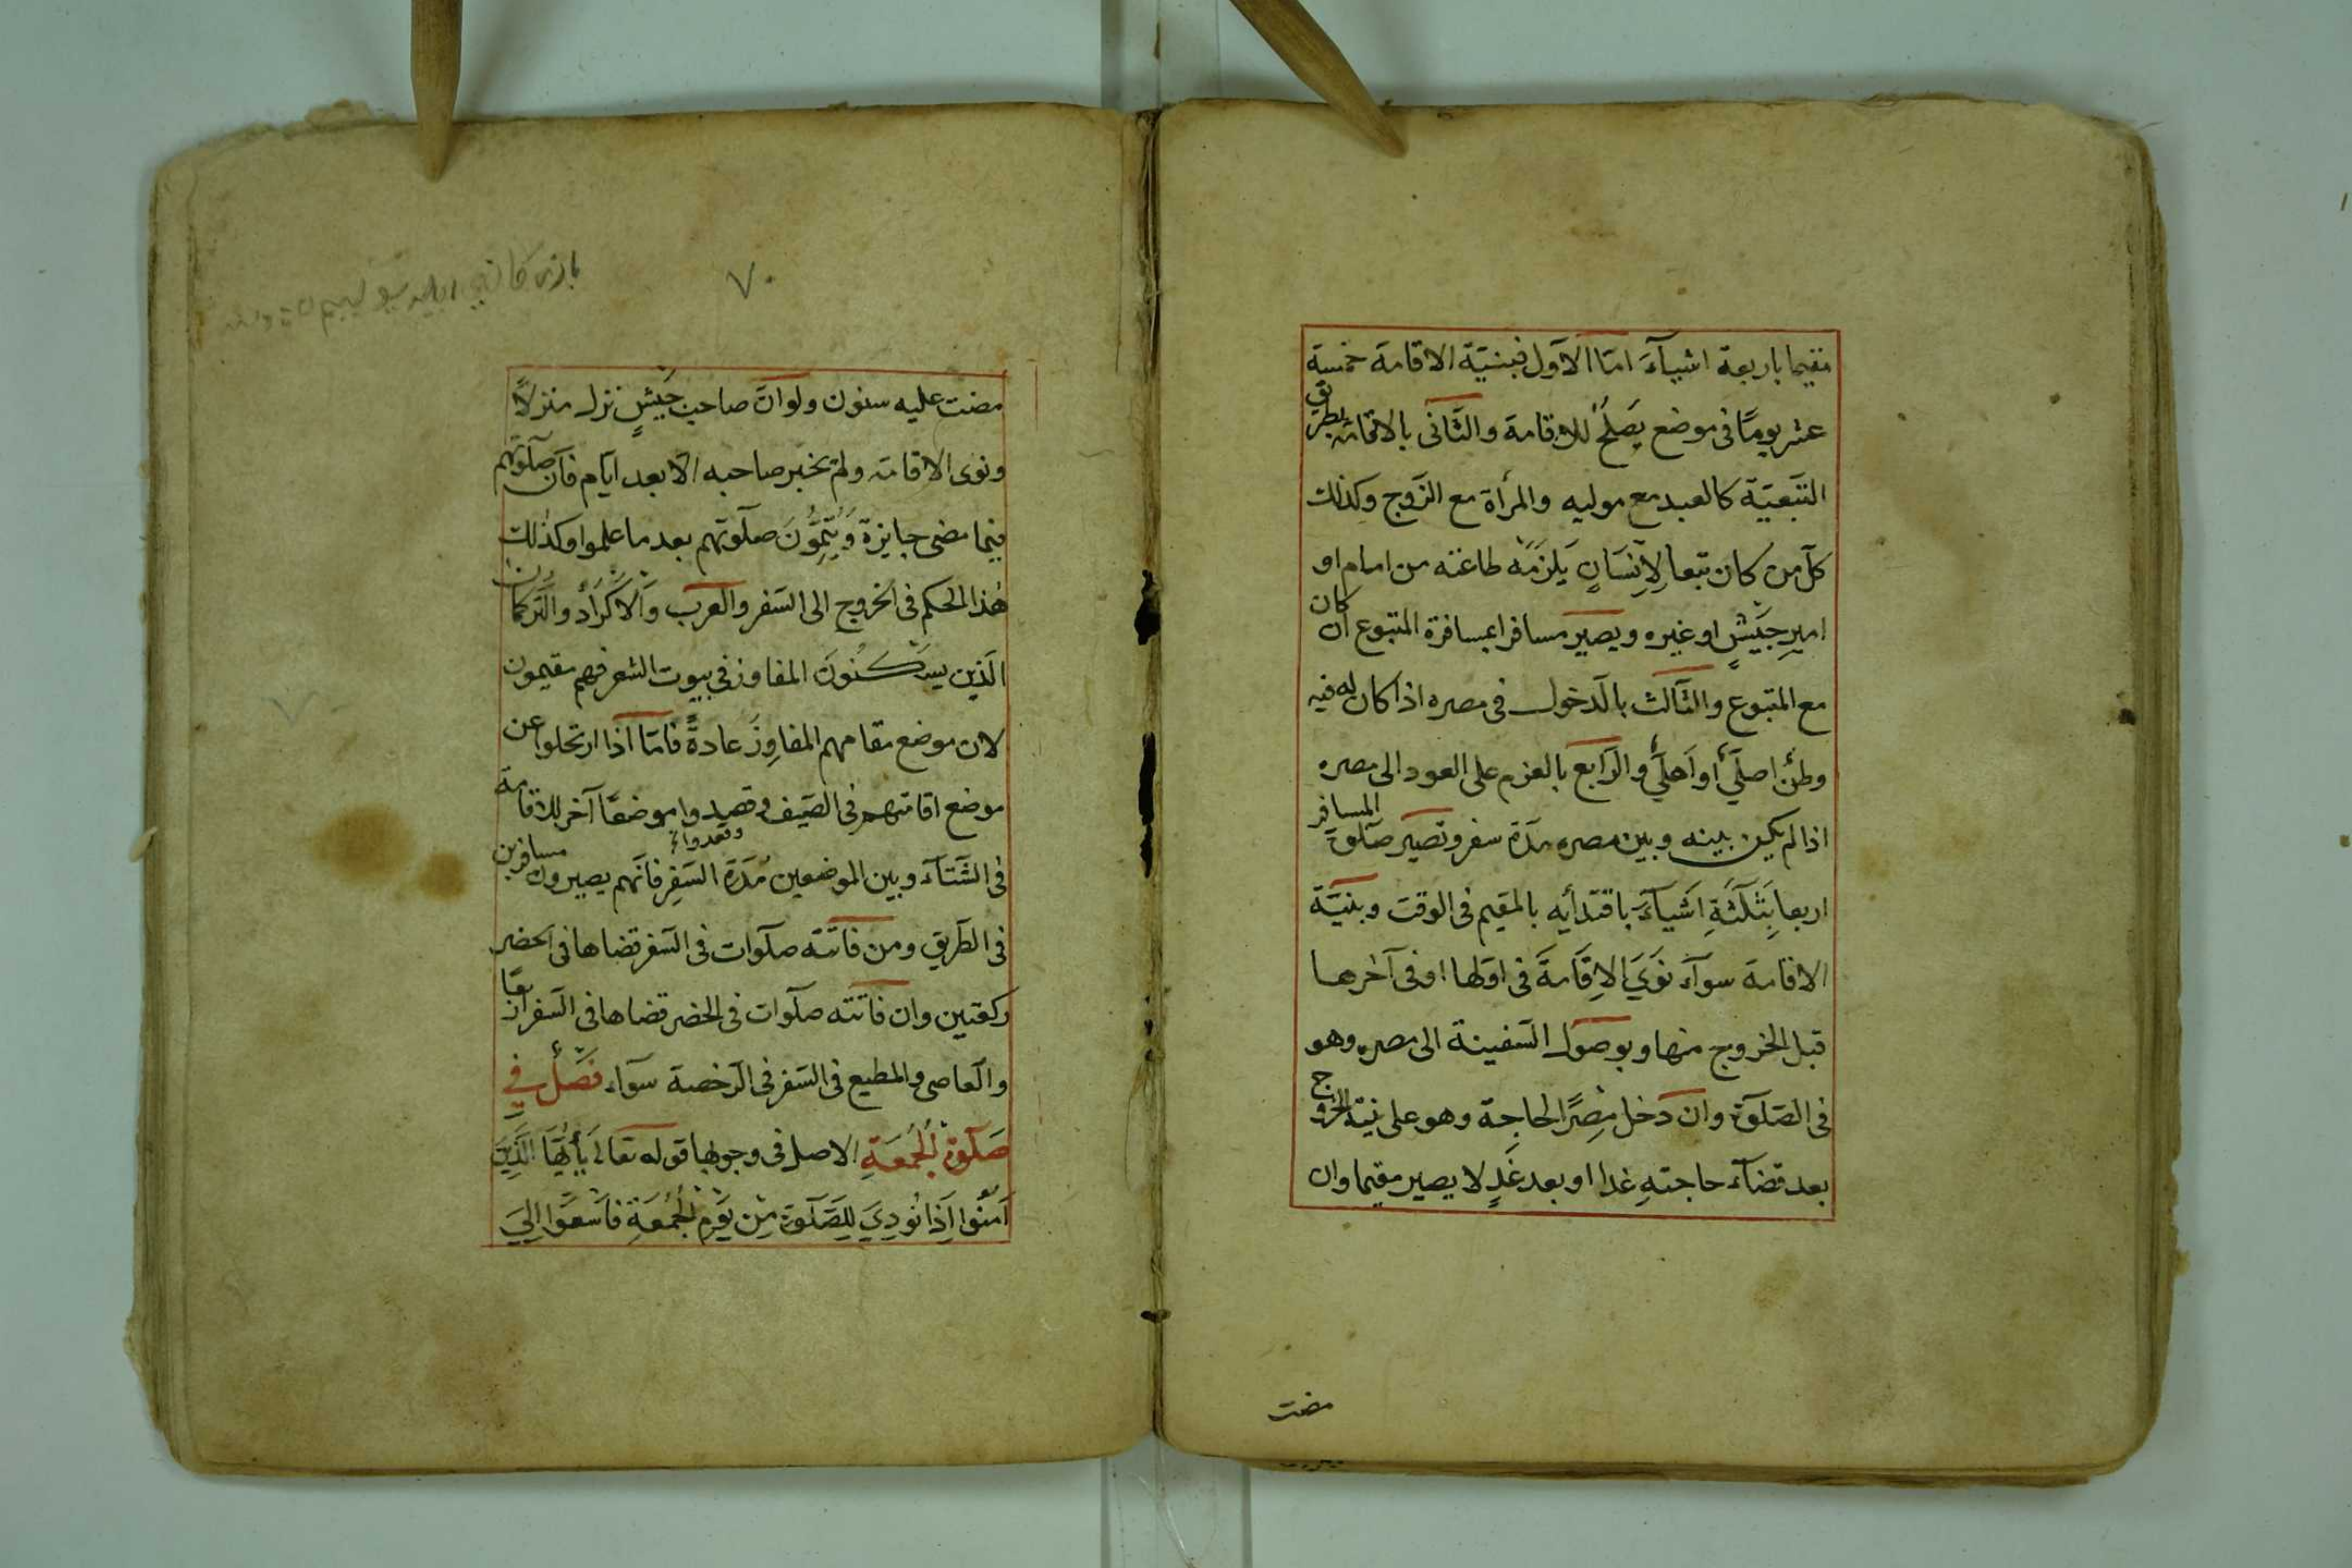 مقيما باربعة اشيآءَ امّا الاوّل فبنيّة الاقامة خمسة
عشر يومًا فى موضع يَصلُحُ للاقامة والثّانى بالاقامة بطريق
التّبعيّة كالعبد مع موليه والمرأة مع الزّوج وكذلك
كلّ من كان تبعا لِاِنْسَانٍ يَلزَمُه طاعته من امام او
اميرِ جَيْشٍ او غيره ويصير مسافرا بمسافرة المتبوع ان كان
مع المتبوع والثّالث بالدّخول فى مصره اذا كان له فيه
وطنٌ اصلىٌّ او اَهلىٌّ والرّابع بالعزم على العود الى مصره
اذا لم يكن بينه وبين مصره مدّة سفر وتصير صلوة المسافر
اربعا بِثَلٰثَةِ اَشْيَآءَ باقتدائه بالمقيم فى الوقت وبنيّة
الاقامة سوآء نَوَىَ الاِقَامَةَ فى اوّلها او فى آخرها
قبل الخروج منها وبوصول السّفينة الى مصره وهو
فى الصّلوة وان دخل مِصْرًا لحاجة وهو على نيّة الخروج
بعد قضآء حاجتهِ غدا او بعد غَدٍ لا يصير مقيما وان
مضت
٧٠
مضت عليه سنون ولو انّ صاحب جَيْشٍ نزل منزلاً
ونوى الاقامة ولم يخبر صاحبه الّا بعد ايّام فانّ صلوتهم
فيما مضى جايزة وَيُتِمُّونَ صلوتهم بعد ما علموا وكذلك
هٰذا الحكم فى الخروج الى السّفر والعرب وَالاَكْرَادُ والتّركمان
الّذين يسْكُنُونَ المفاوز فى بيوت الشّعر فهم مقيمون
لان موضع مقامهم المفاوِزُ عادةً فامّا اذا ارتحلوا عن
موضع اقامتهم فى الصّيف وقصدوا موضعًا آخر للاقامة
فى الشّتآء وبين الموضعين مُدّةُ السّفرِ فانّهم يصيرون مسافرين
فى الطّريق ومن فاتته صلوات فى السّفر قضاها فى الحضر
ركعتين وان فاتته صلوات فى الحضر قضاها فى السّفر اربعًا
والعاصى والمطيع فى السّفر فى الرّخصة سوآء فَصْلٌ فِى
صَلٰوةِ الْجُمُعَةِ الاصل فى وجوبها قوله تعالى يَأيُّهَا الَّذِينَ
آمَنُوا اِذَا نُودِىَ لِلصَّلٰوةِ مِن يَوْمِ الْجُمُعَةِ فَاسْعَوْا اِلىَ